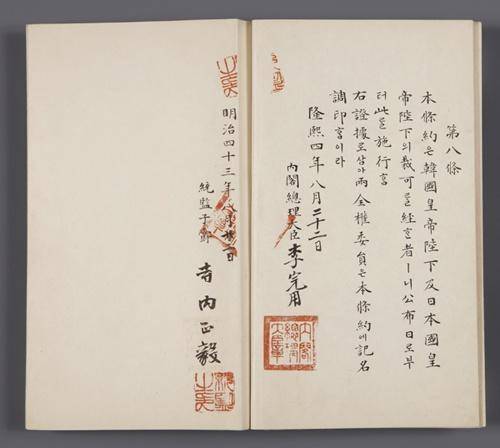 第八條
本條約은韓國皇帝陛下及日本國皇
帝陛下의裁可를經ᄒᆞᆫ者ㅣ니公布日로부
터此를施行홈
右證據로삼아兩全權委員은本條約에記名
調印홈이라
隆熙四年八月二十二日
內閣總理大臣李完用
內閣總理大臣章
明治四十三年八月 二日
統監子爵寺内正毅
統監之印